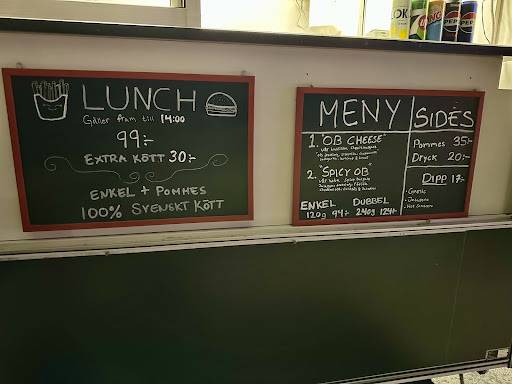 LUNCH
Gäller fram till 14:00
99:-
EXTRA KÖTT 30:-
ENKEL + POMMES
100% SVENSKT KÖTT
MENY
1. "OB CHEESE"
2. "SPICY OB"
ENKEL DUBBEL
120g 94:- 240g 124:-
SIDES
Pommes 35:-
Dryck 20:-
DIPP 17:-
- Garlic
LOK
PEPSI